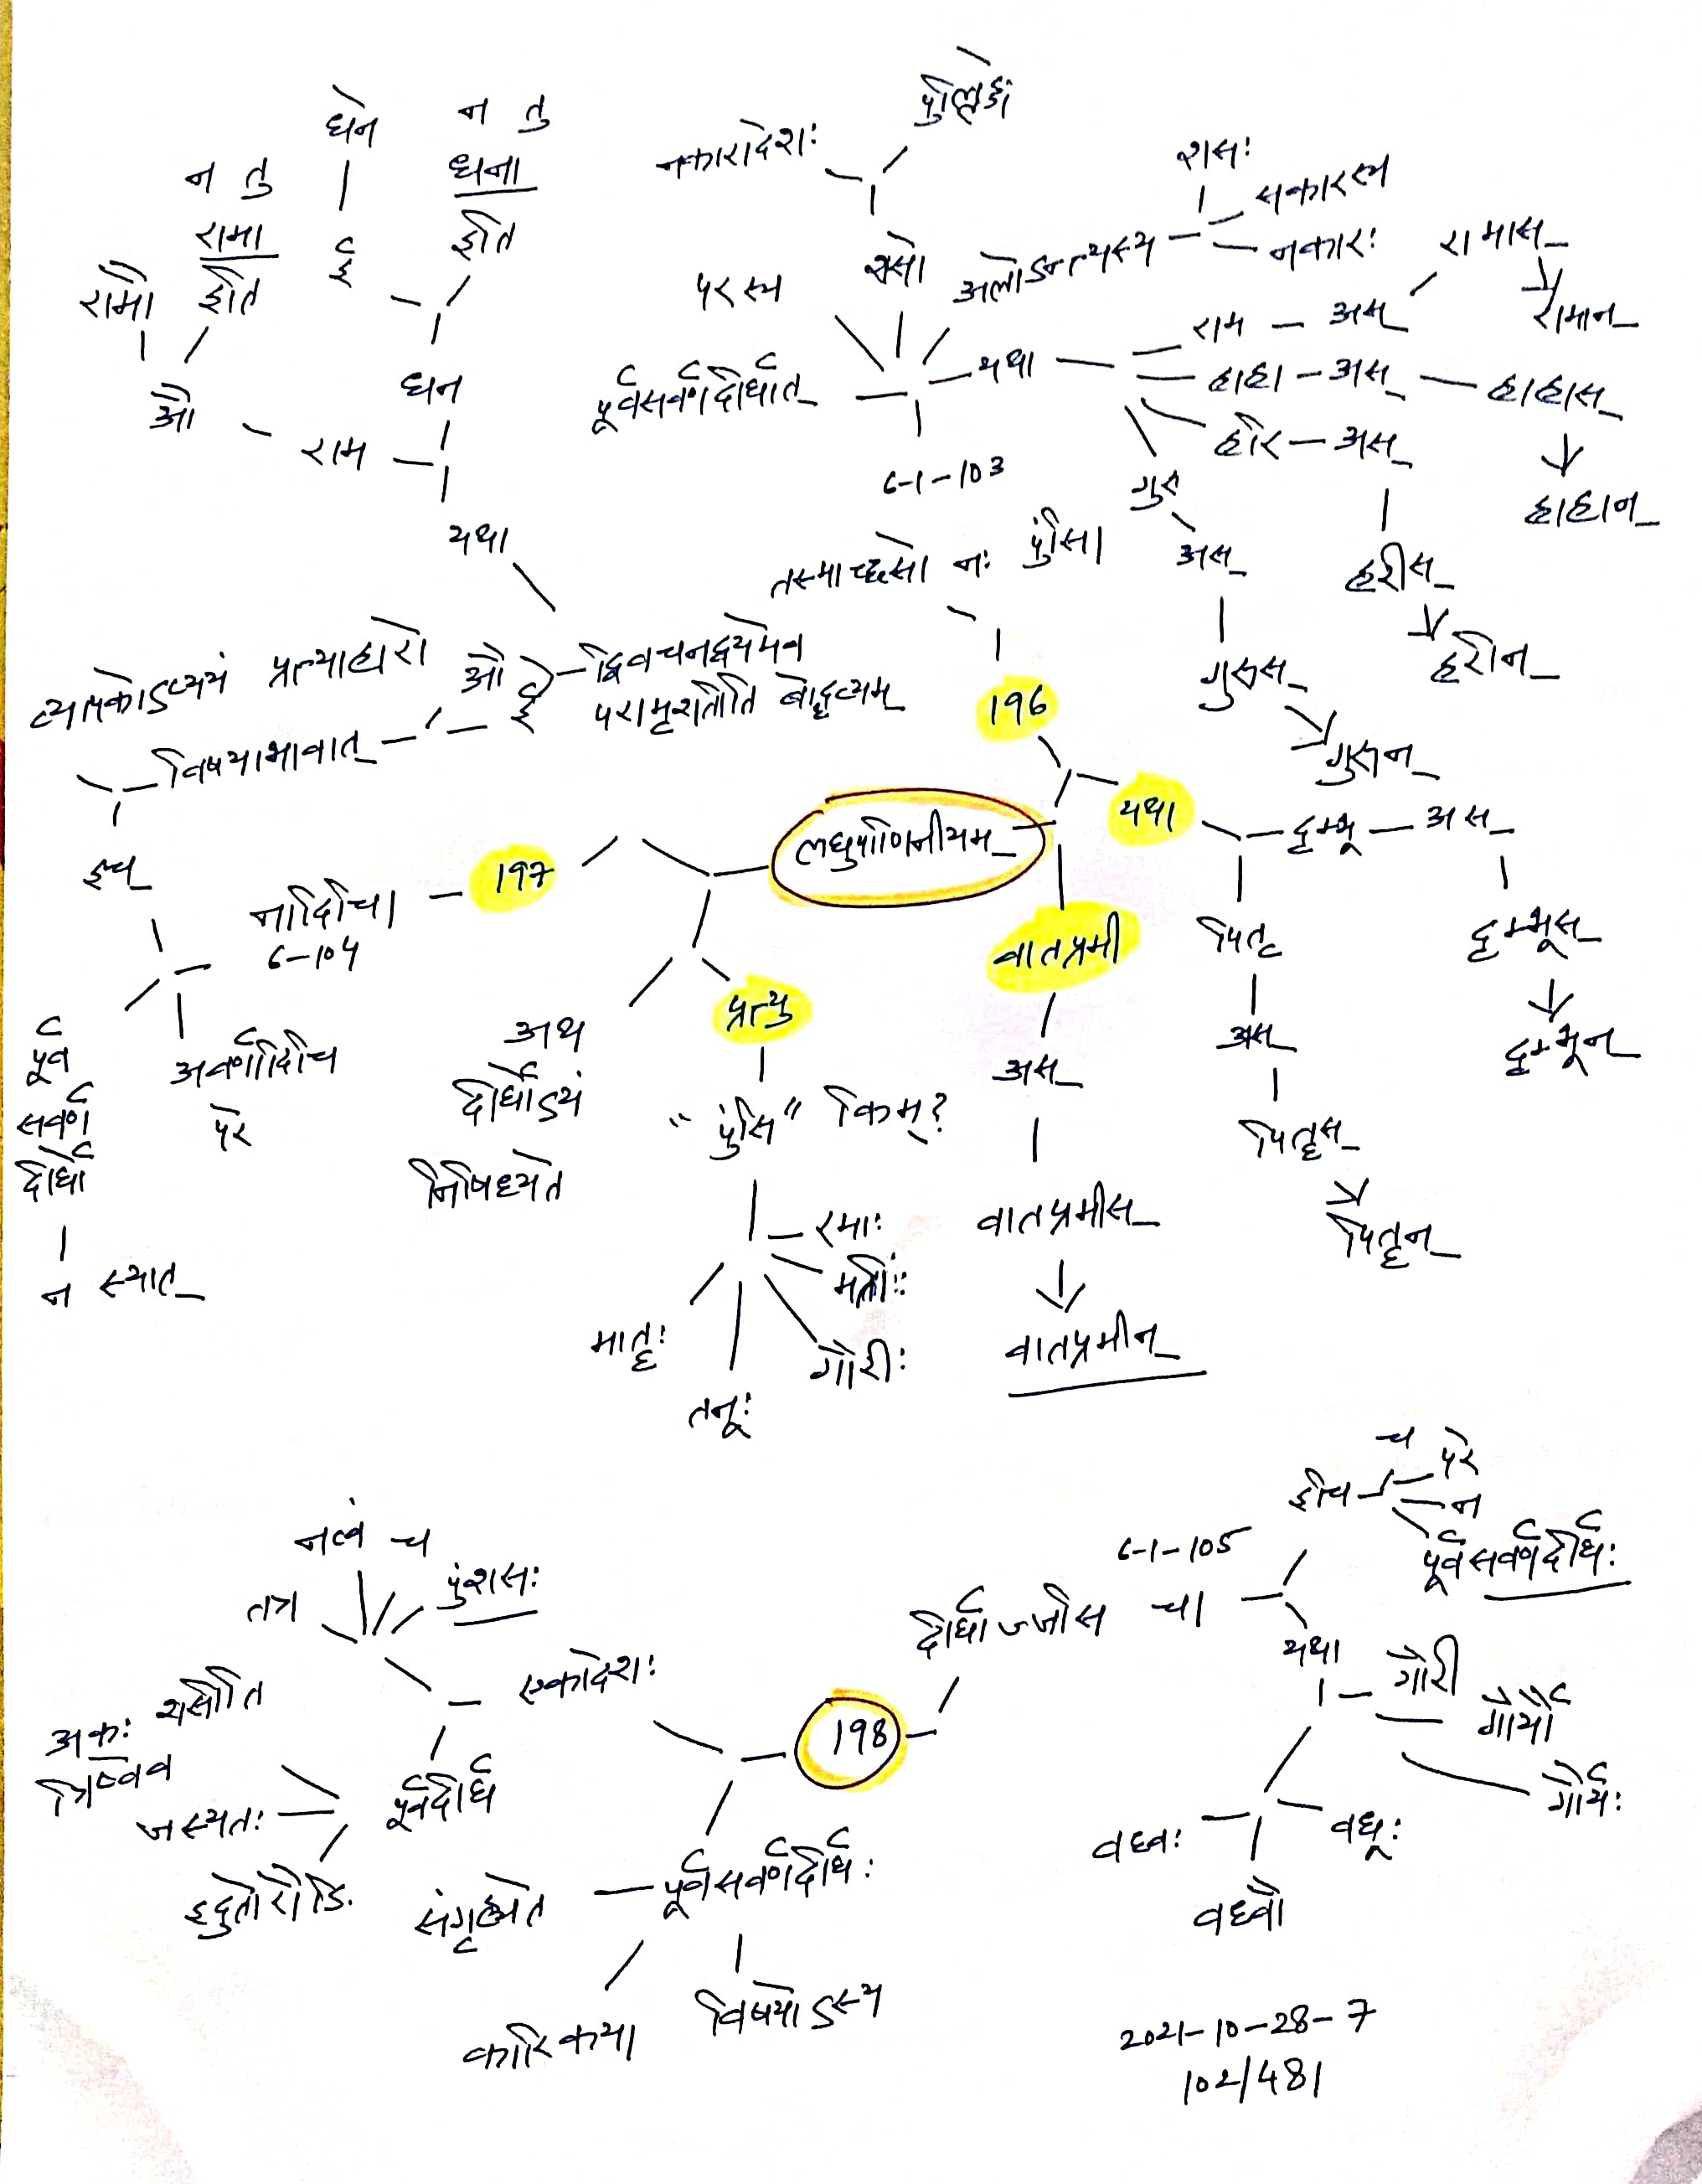 धने
न तु
धना
इति
ई
धन
न तु
रामा
इति
रामौ
औ
राम
यथा
पुंल्लिङ्गे
नकारादेशः
शसो
परस्य
पूर्वसवर्णदीर्घात्
अलोऽन्त्यस्य
शसः
सकारस्य
नकारः
यथा
राम - अस्
रामास्
रामान्
हाहा - अस्
हाहास्
हाहान्
हरि - अस्
हरीस्
हरीन्
गुरु
अस्
गुरूस्
गुरून्
6-1-103
तस्माच्छसो नः पुंसि।
196
यथा
दृम्भू - अस्
दृम्भूस्
दृम्भून्
पितृ
अस्
पितॄस्
पितॄन्
वातप्रमी
अस्
वातप्रमीस्
वातप्रमीन्
लघुपाणिनीयम्
औ
ई
द्विवचनद्वयमेव
परामृशतीति बोद्धव्यम्
व्यापकोऽप्ययं प्रत्याहारो
विषयाभावात्
इच्
197
नादिचि।
6-104
पूर्व
सवर्ण
दीर्घो
न स्यात्
अवर्णादिचि
परे
अथ
दीर्घोऽयं
निषिध्यते
प्रत्यु
"पुंसि" किम्?
रमाः
मतीः
गौरीः
तनूः
मातॄः
198
दीर्घाज्जसि च।
6-1-105
इचि
च
परे
न
पूर्वसवर्णदीर्घः
यथा
गौरी
गौर्यौ
गौर्यः
वधूः
वध्वौ
वध्वः
एकादेशः
पूर्वदीर्घ
तत्र
नत्वं च
पुंशसः
अकः शसीति
त्रिष्वेव
जस्यतः
इदुतोरौङि
पूर्वसवर्णदीर्घः
संगृह्यते
कारिकया
विषयोऽस्य
2021-10-28-7
102/481